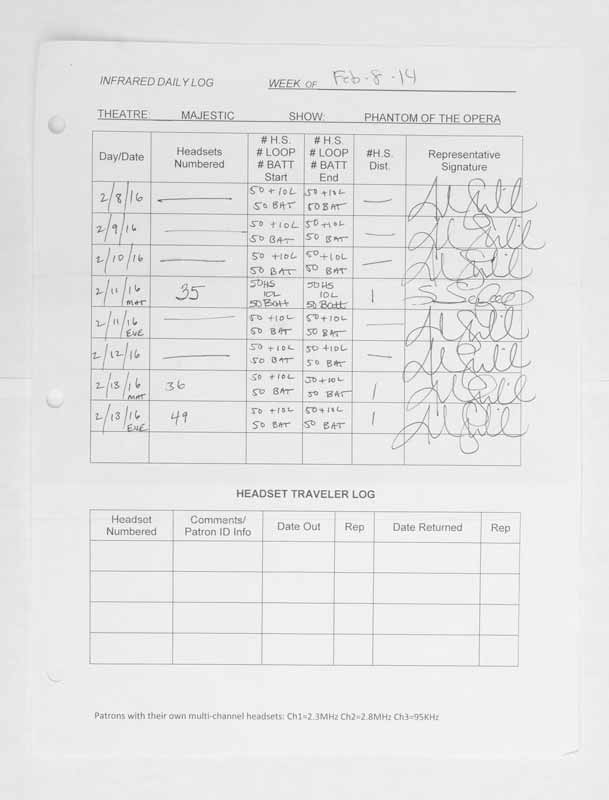 INFRARED DAILY LOG WEEK OF Feb - 8 - 14
THEATRE: MAJESTIC SHOW: PHANTOM OF THE OPERA
Day/Date Headsets Numbered # H.S. # LOOP # BATT Start # H.S. # LOOP # BATT End #H.S. Dist. Representative Signature
2/8/16 — 50 + 10L 50 BAT 50 + 10L 50 BAT —
2/9/16 — 50 + 10L 50 BAT 50 + 10L 50 BAT —
2/10/16 — 50 + 10L 50 BAT 50 + 10L 50 BAT —
2/11/16 MAT 35 50HS 10L 50 Batt 50HS 10L 50 Batt 1
2/11/16 EVE — 50 + 10L 50 BAT 50 + 10L 50 BAT —
2/12/16 — 50 + 10L 50 BAT 50 + 10L 50 BAT —
2/13/16 MAT 36 50 + 10L 50 BAT 50 + 10L 50 BAT 1
2/13/16 EVE 49 50 + 10L 50 BAT 50 + 10L 50 BAT 1
HEADSET TRAVELER LOG
Headset Numbered Comments/ Patron ID Info Date Out Rep Date Returned Rep
Patrons with their own multi-channel headsets: Ch1=2.3MHz Ch2=2.8MHz Ch3=95KHz